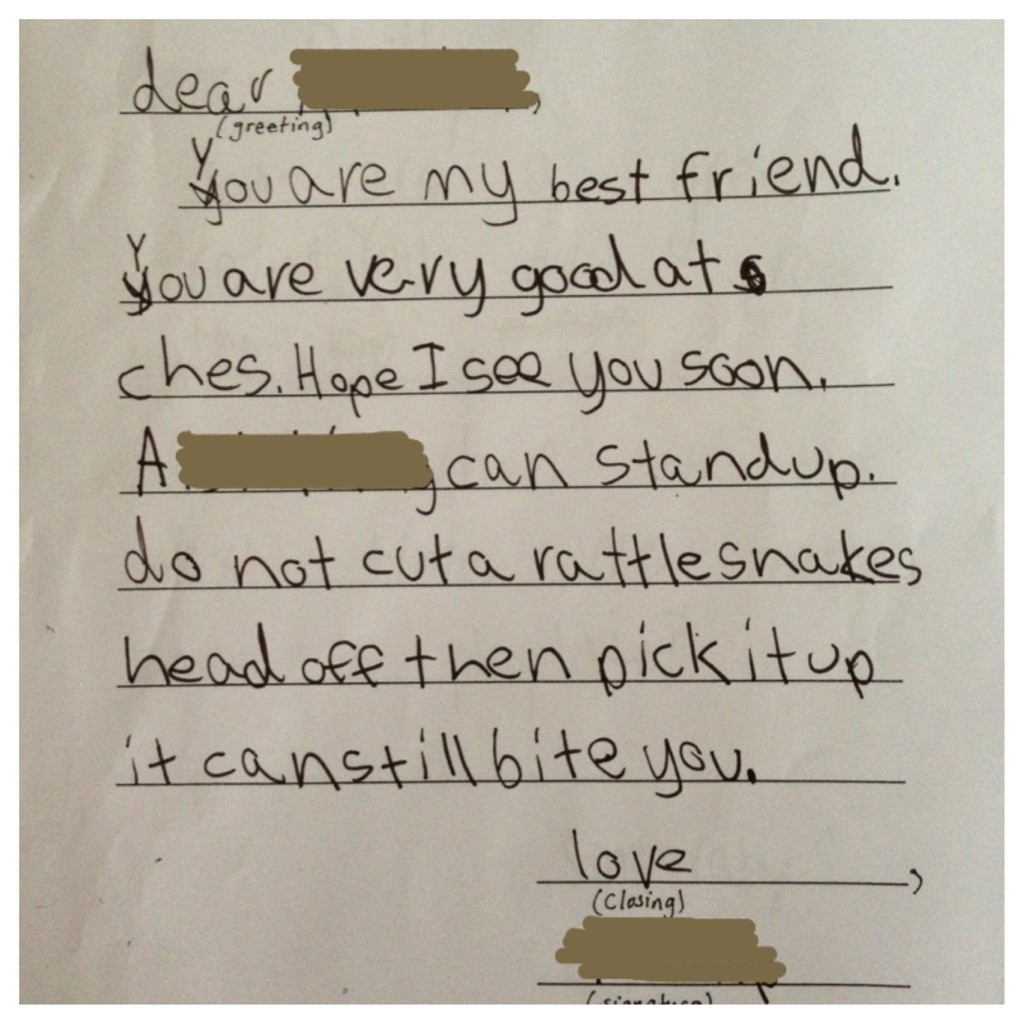 dear ,
(greeting)
You are my best friend.
You are very good at
ches. Hope I see you soon.
A can stand up.
do not cut a rattlesnakes
head off then pick it up
it can still bite you.
love ,
(Closing)
(signature)